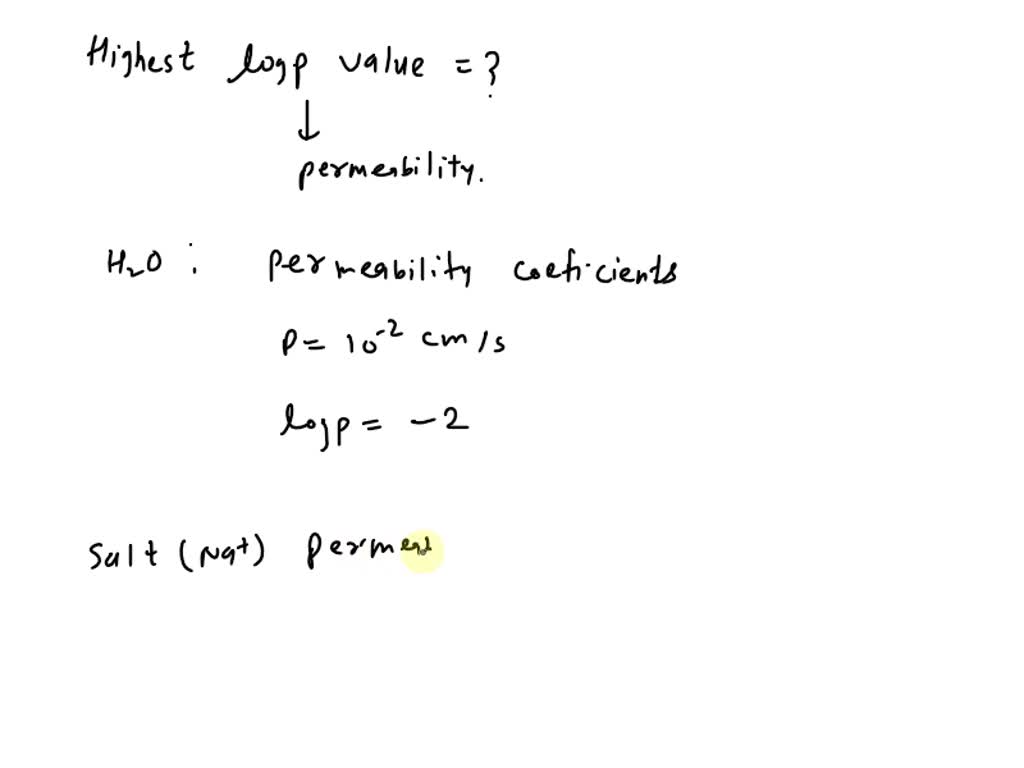 Highest logp value = ?
↓
permeability.
H₂O : permeability coeficients
P = 10⁻² cm/s
logp = -2
Salt (Na⁺) permea